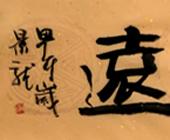 遠
甲午歲
景龍